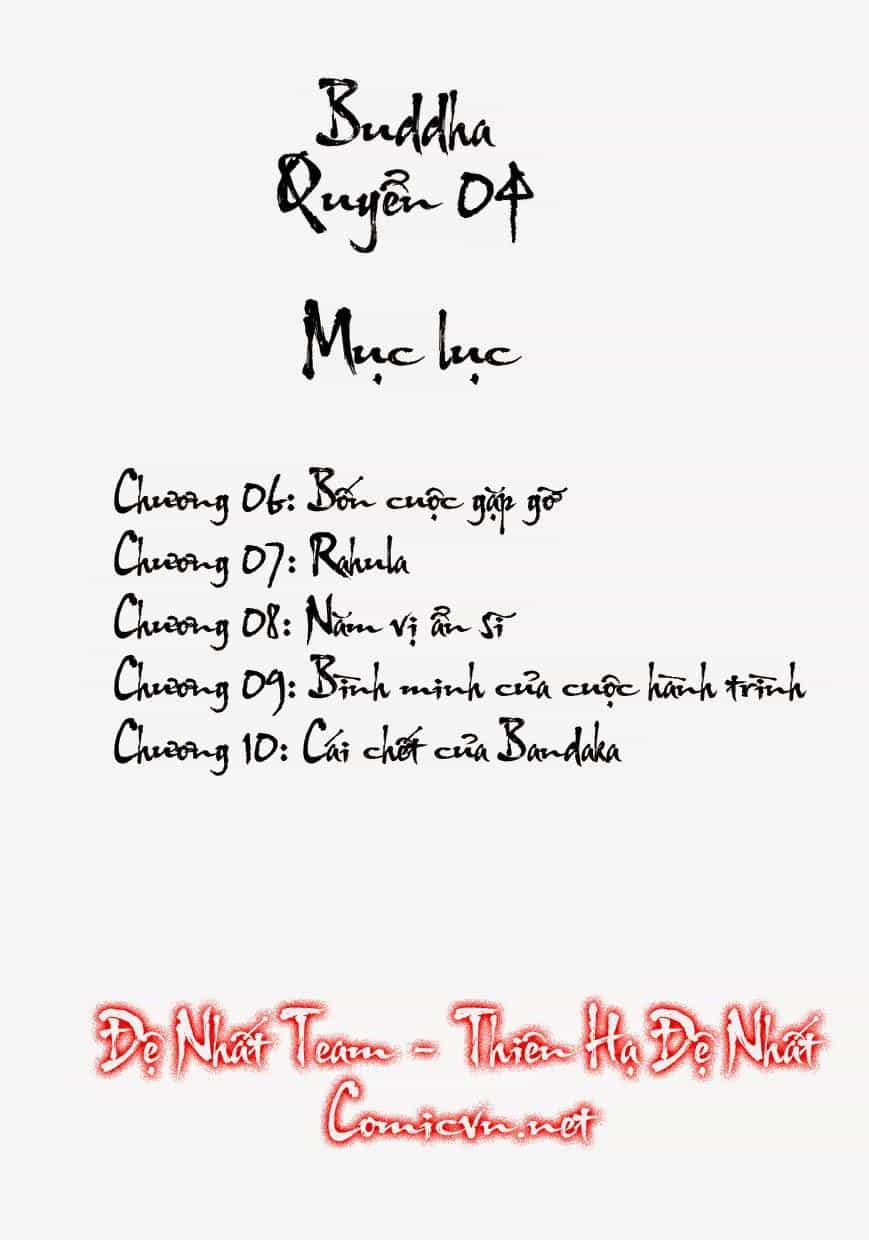 Buddha
Quyển 04
Mục lục
Chương 06: Bốn cuộc gặp gỡ
Chương 07: Rahula
Chương 08: Năm vị ẩn sĩ
Chương 09: Bình minh của cuộc hành trình
Chương 10: Cái chết của Bandaka
Đệ Nhất Team - Thiên Hạ Đệ Nhất
Comicvn.net